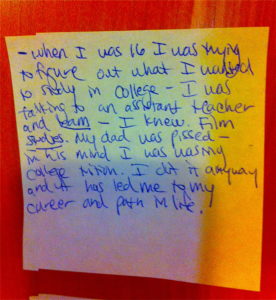 - when I was 16 I was trying
to figure out what I wanted
to study in college - I was
talking to an assistant teacher
and bam - I knew. Film
studies. My dad was pissed -
in his mind I was was my
college tuition. I did it anyway
and it has led me to my
career and path in life.